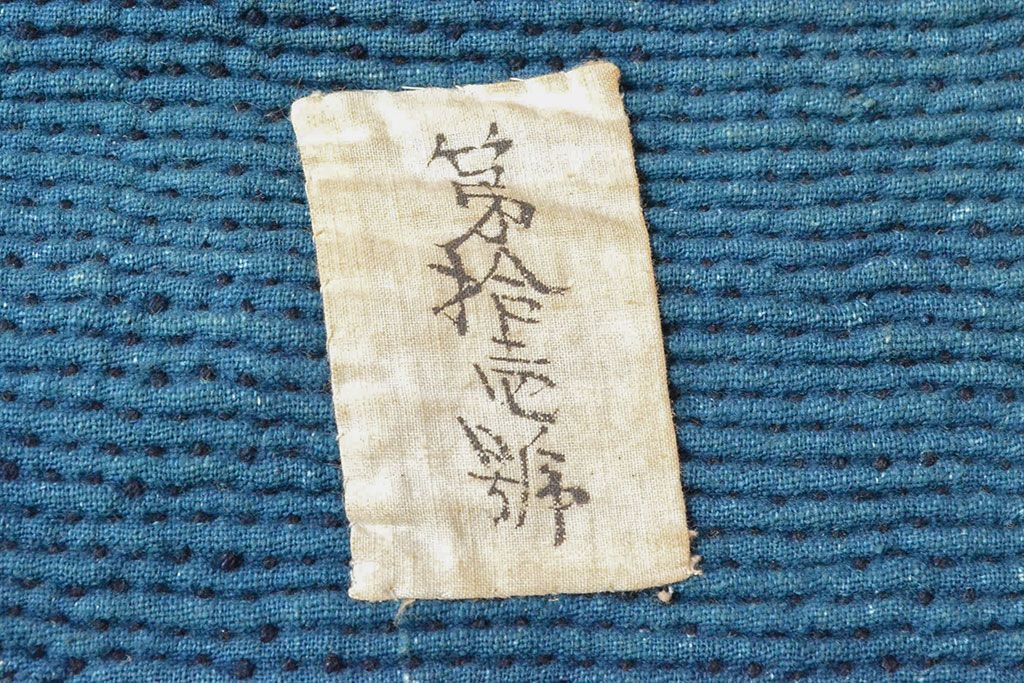 第拾壱號